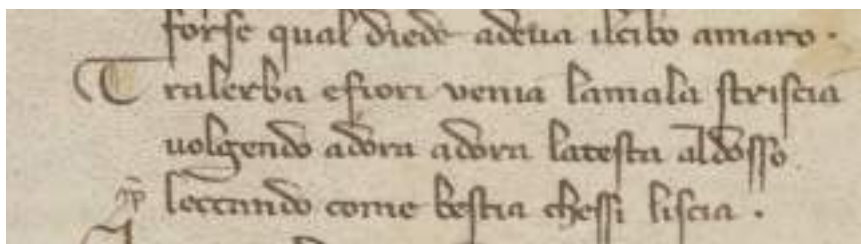 forse qual diede adeva ilcibo amaro.
Tralerba efiori venia lamala striscia
volgendo adora adora latesta aldosso
leccando come bestia chessi liscia.